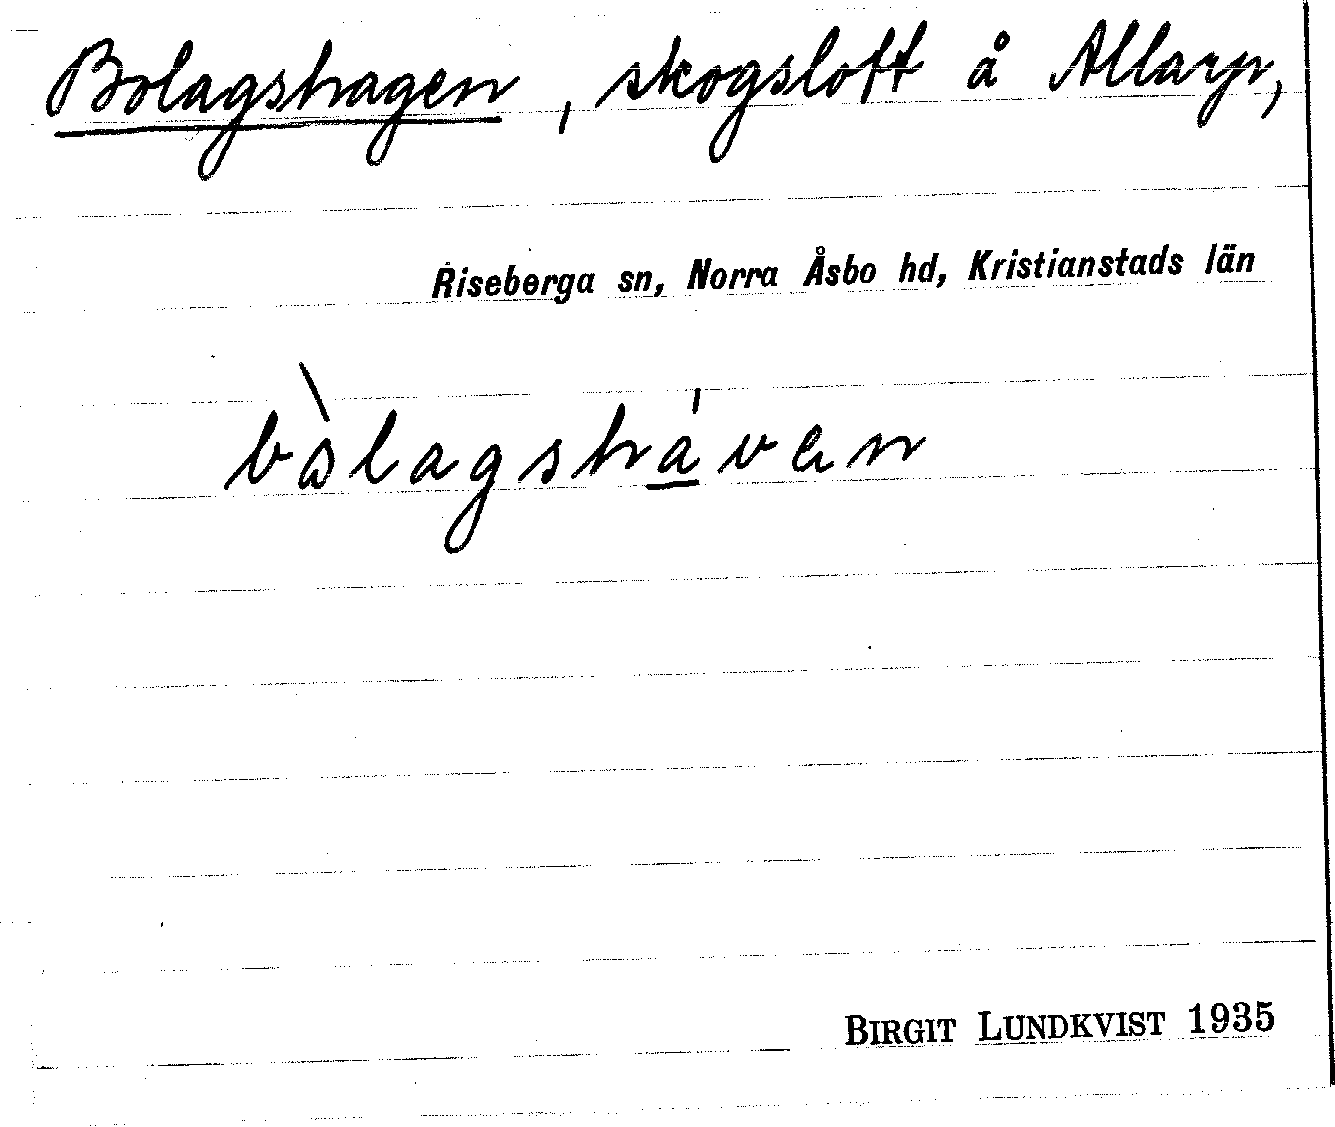 Bolagshagen, skogslott å Allarp,
Riseberga sn, Norra Åsbo hd, Kristianstads län
bòlagshávan
BIRGIT LUNDKVIST 1935